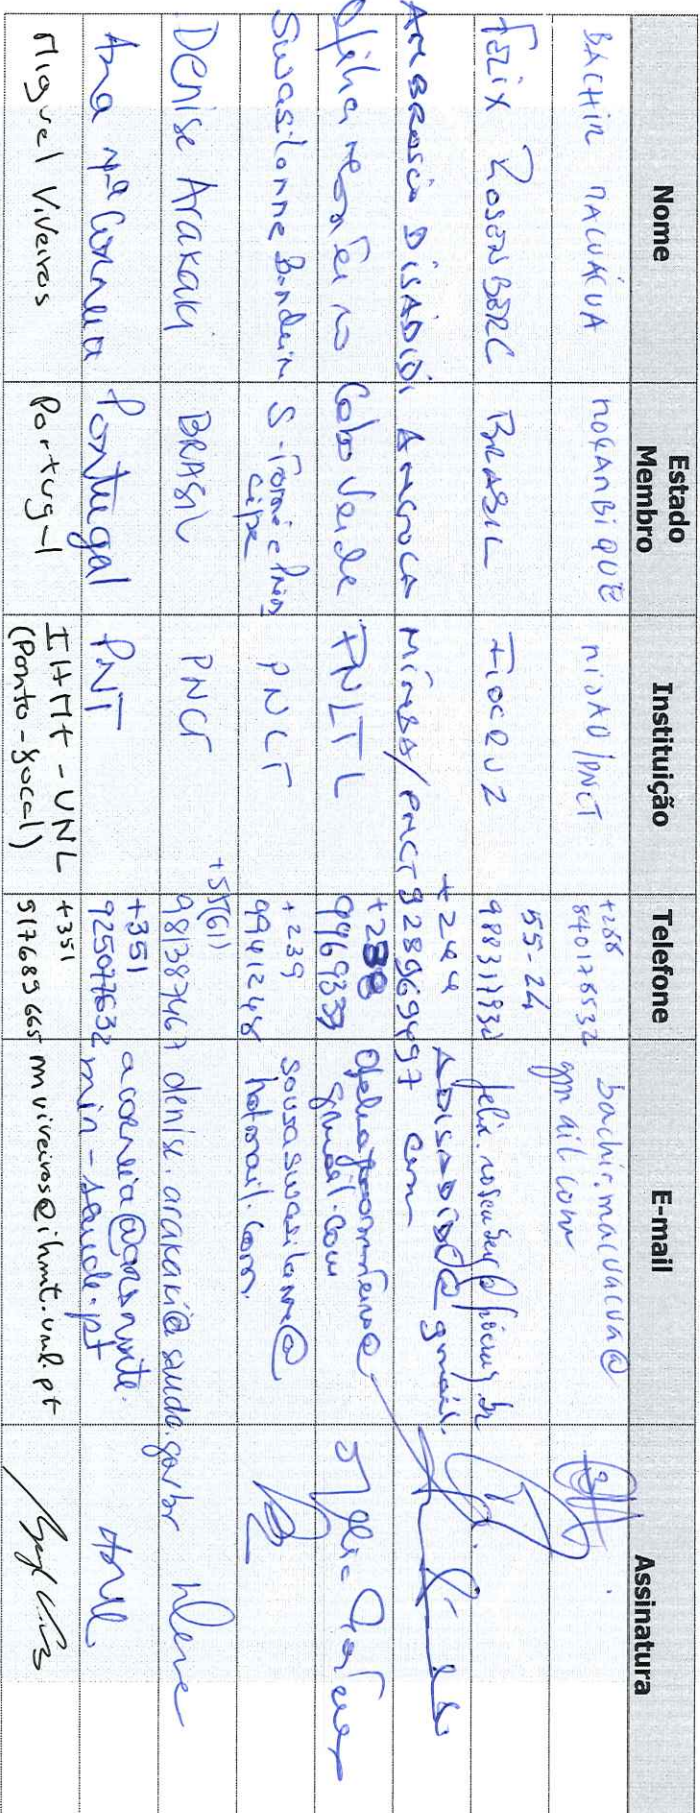 Nome Estado Membro Instituição Telefone E-mail Assinatura
BACHIR MACUÁCUA MOÇAMBIQUE MISAU/PNCT +258 840176532 bachir.macuacua@gmail.com
FELIX ROSENBERG BRASIL FIOCRUZ 55-24 988311932 felix.rosenberg@fiocruz.br
AMBROSIO DISADIDI ANGOLA MINSA/PNCT +244 928969497 ADISADIDI@gmail.com
Cabo Verde PNLTL +238
Swasilanne Bandeira S. Tomé e Príncipe PNCT +239 9941248 sousaswasilanne@hotmail.com.
Denise Arakaki BRASIL PNCT +55(61) 981387467 denise.arakaki@saude.gov.br
Ana Mª Correia Portugal PNT +351 925077632 acorreia@arsnorte.min-saude.pt
Miguel Viveiros Portugal IHMT-UNL (Ponto-focal) +351 917689665 mviveiros@ihmt.unl.pt